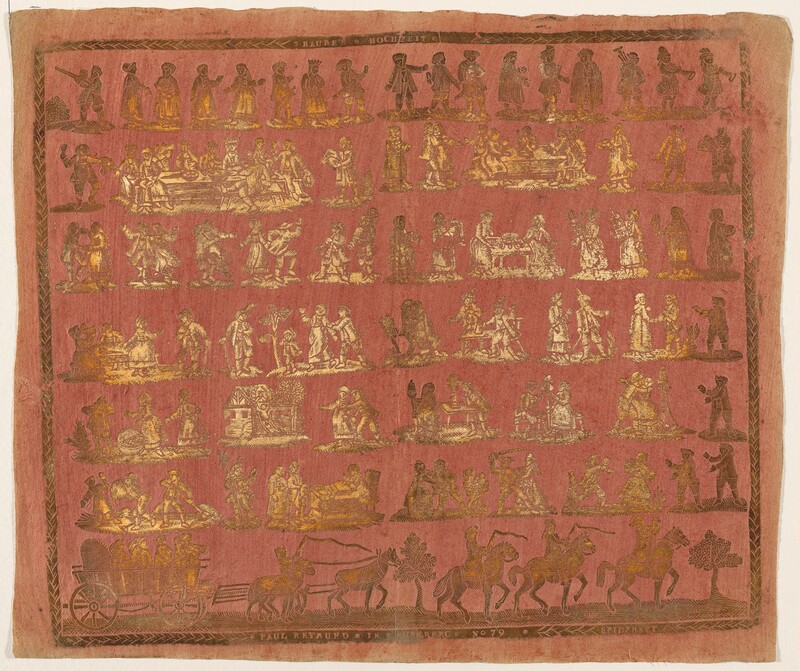 BAUREN * HOCHZEIT
* PAUL REYMUND * IN NURNBERG * No 79